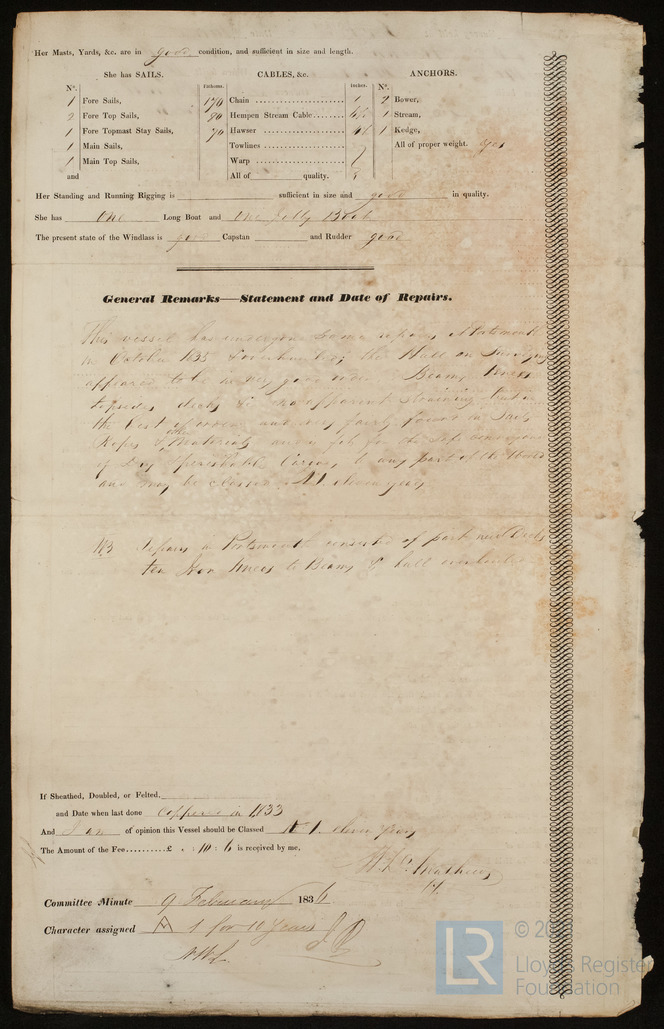 Her Masts, Yards, &c. are in good condition, and sufficient in size and length.
She has SAILS. CABLES, &c. ANCHORS.
No. Fathoms. Inches. No.
1 Fore Sails, 170 Chain 1 2 Bower,
2 Fore Top Sails, 90 Hempen Stream Cable 1 Stream,
1 Fore Topmast Stay Sails, 70 Hawser 1 Kedge,
1 Main Sails, Towlines All of proper weight. Yes
1 Main Top Sails, Warp
and All of quality.
Her Standing and Running Rigging is sufficient in size and good in quality.
She has One Long Boat and One Jolly Boat
The present state of the Windlass is good Capstan and Rudder good
General Remarks—Statement and Date of Repairs.
This vessel has undergone some repairs at Portsmouth
in October 1835 the Hull on Surveying
appeared to be in very good order Beams Knees
topsides decks & no apparent straining
the best of order and is fairly found in Sails
Ropes & other Materials and is fit for the safe conveyance
of Dry & perishable Cargoes to any part of the World
and may be classed A1 eleven years
183 repairs in Portsmouth consisted of part new Deck
ten Iron Knees to Beams & hull overhauled
If Sheathed, Doubled, or Felted,
and Date when last done Coppered in 1833
And I am of opinion this Vessel should be Classed A 1 eleven years
The Amount of the Fee £ 10 : 6 is received by me,
Committee Minute 9 February 1836
Character assigned A 1 for 10 Years
LR
© 20
Lloyd's Register
Foundation